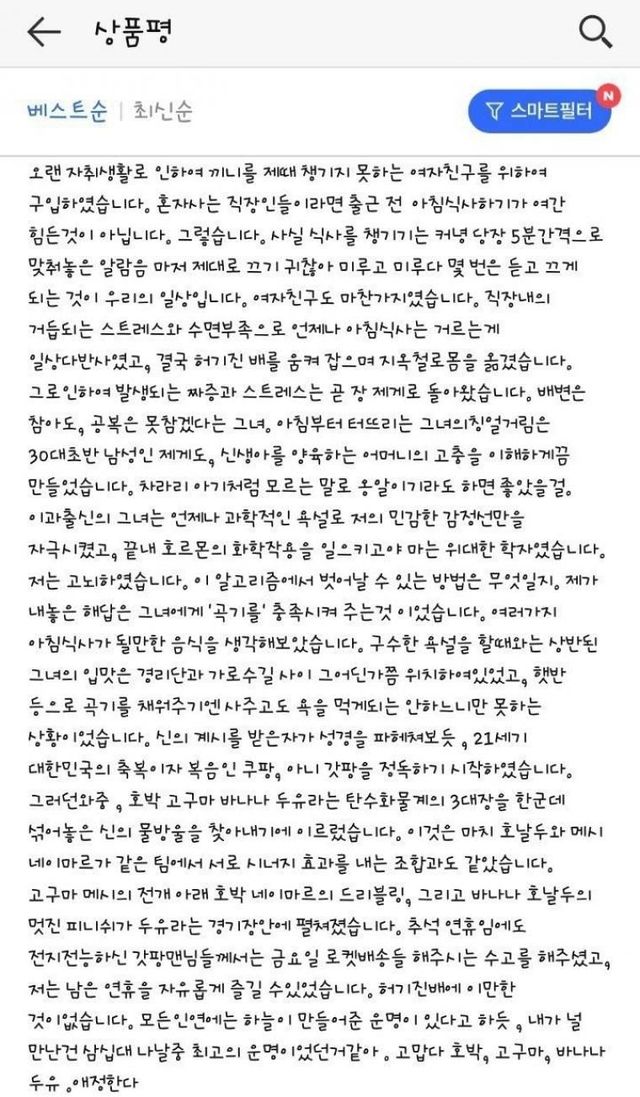 상품평
베스트순 | 최신순
스마트필터
N
오랜 자취생활로 인하여 끼니를 제때 챙기지 못하는 여자친구를 위하여
구입하였습니다. 혼자사는 직장인들이라면 출근 전 아침식사하기가 여간
힘든것이 아닙니다. 그렇습니다. 사실 식사를 챙기기는 커녕 당장 5분간격으로
맞춰놓은 알람음 마저 제대로 끄기 귀찮아 미루고 미루다 몇 번은 듣고 끄게
되는 것이 우리의 일상입니다. 여자친구도 마찬가지였습니다. 직장내의
거듭되는 스트레스와 수면부족으로 언제나 아침식사는 거르는게
일상다반사였고, 결국 허기진 배를 움켜 잡으며 지옥철로몸을 옮겼습니다.
그로인하여 발생되는 짜증과 스트레스는 곧 장 제게로 돌아왔습니다. 배변은
참아도, 공복은 못참겠다는 그녀. 아침부터 터뜨리는 그녀의칭얼거림은
30대초반 남성인 제게도, 신생아를 양육하는 어머니의 고충을 이해하게끔
만들었습니다. 차라리 아기처럼 모르는 말로 옹알이기라도 하면 좋았을걸.
이과출신의 그녀는 언제나 과학적인 욕설로 저의 민감한 감정선만을
자극시켰고, 끝내 호르몬의 화학작용을 일으키고야 마는 위대한 학자였습니다.
저는 고뇌하였습니다. 이 알고리즘에서 벗어날 수 있는 방법은 무엇일지. 제가
내놓은 해답은 그녀에게 '곡기를' 충족시켜 주는것 이었습니다. 여러가지
아침식사가 될만한 음식을 생각해보았습니다. 구수한 욕설을 할때와는 상반된
그녀의 입맛은 경리단과 가로수길 사이 그어딘가쯤 위치하여있었고, 햇반
등으로 곡기를 채워주기엔 사주고도 욕을 먹게되는 안하느니만 못하는
상황이었습니다. 신의 계시를 받은자가 성경을 파헤쳐보듯 , 21세기
대한민국의 축복이자 복음인 쿠팡, 아니 갓팡을 정독하기 시작하였습니다.
그러던와중 , 호박 고구마 바나나 두유라는 탄수화물계의 3대장을 한군데
섞어놓은 신의 물방울을 찾아내기에 이르렀습니다. 이것은 마치 호날두와 메시
네이마르가 같은 팀에서 서로 시너지 효과를 내는 조합과도 같았습니다.
고구마 메시의 전개 아래 호박 네이마르의 드리블링, 그리고 바나나 호날두의
멋진 피니쉬가 두유라는 경기장안에 펼쳐졌습니다. 추석 연휴임에도
전지전능하신 갓팡맨님들께서는 금요일 로켓배송을 해주시는 수고를 해주셨고,
저는 남은 연휴을 자유롭게 즐길 수있었습니다. 허기진배에 이만한
것이없습니다. 모든인연에는 하늘이 만들어준 운명이 있다고 하듯 , 내가 널
만난건 삼십대 나날중 최고의 운명이었던거같아 . 고맙다 호박, 고구마, 바나나
두유 .애정한다